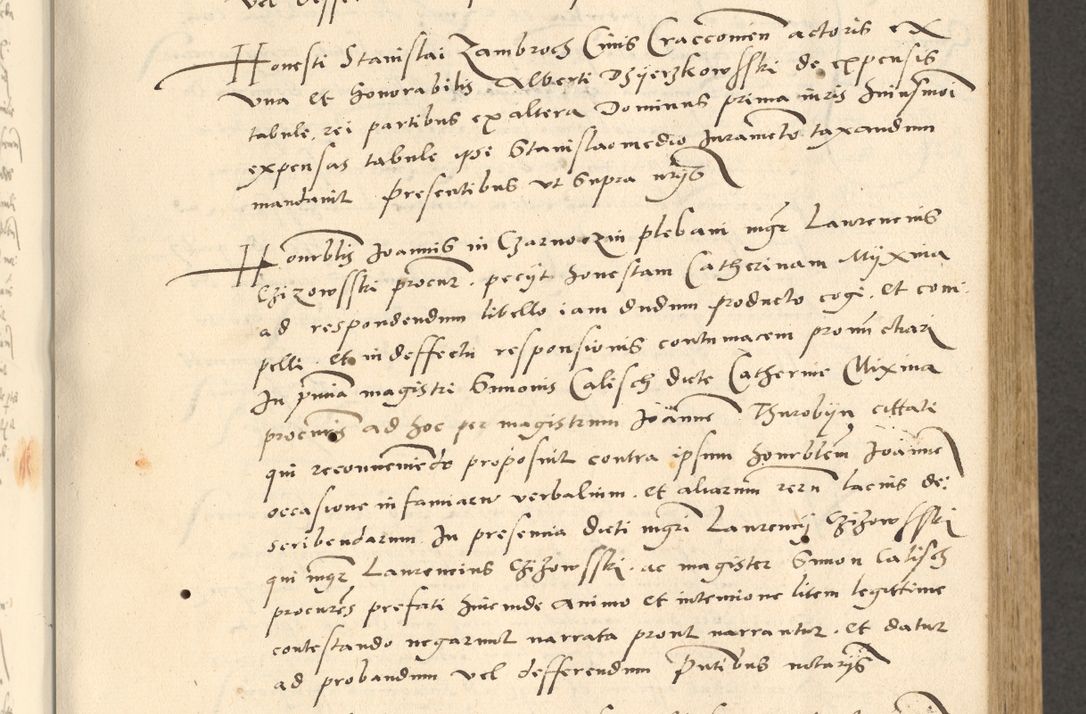 Honesti Stanislai Zambroch Civis Craccovien actoris ex
vna et honorabilis Alberti Dzyerzkowsski de expensis
tabule, rei partibus ex altera Dominus prima iuris huiusmoi
expensas tabule ipse Stanislao medio Juramento taxandum
mandauit presentibus vt supra nrys
Honrblis Joannis in Czarnoczin plebani mgr Laurencius
Czizowsski procur. peciit honestam Catherinam Mixina
ad respondendum libello iam dudum producto cogi. et com
pelli. et in deffectu responsionis contumacem pronunctiari
In pntia magistri Simonis Calisch dicte Catherine Mixina
procuris ad hoc per magistrum Joanne Thurobyn cittati
qui reconueniedo proposuit contra ipsum honrblem Joanne
occasione infamiarum verbalium. et aliarum rerum lacius de:
scribendarum. In presentia dicti mgri Laurencij Czizowsski
qui mgr Laurencius Czizowsski. ac magister Simon Calisch
procures prefati hincinde animo et intencione litem legittime
contestando negarunt narrata prout narrantur. et datur
ad probandum vel defferendum Pntibus notarys